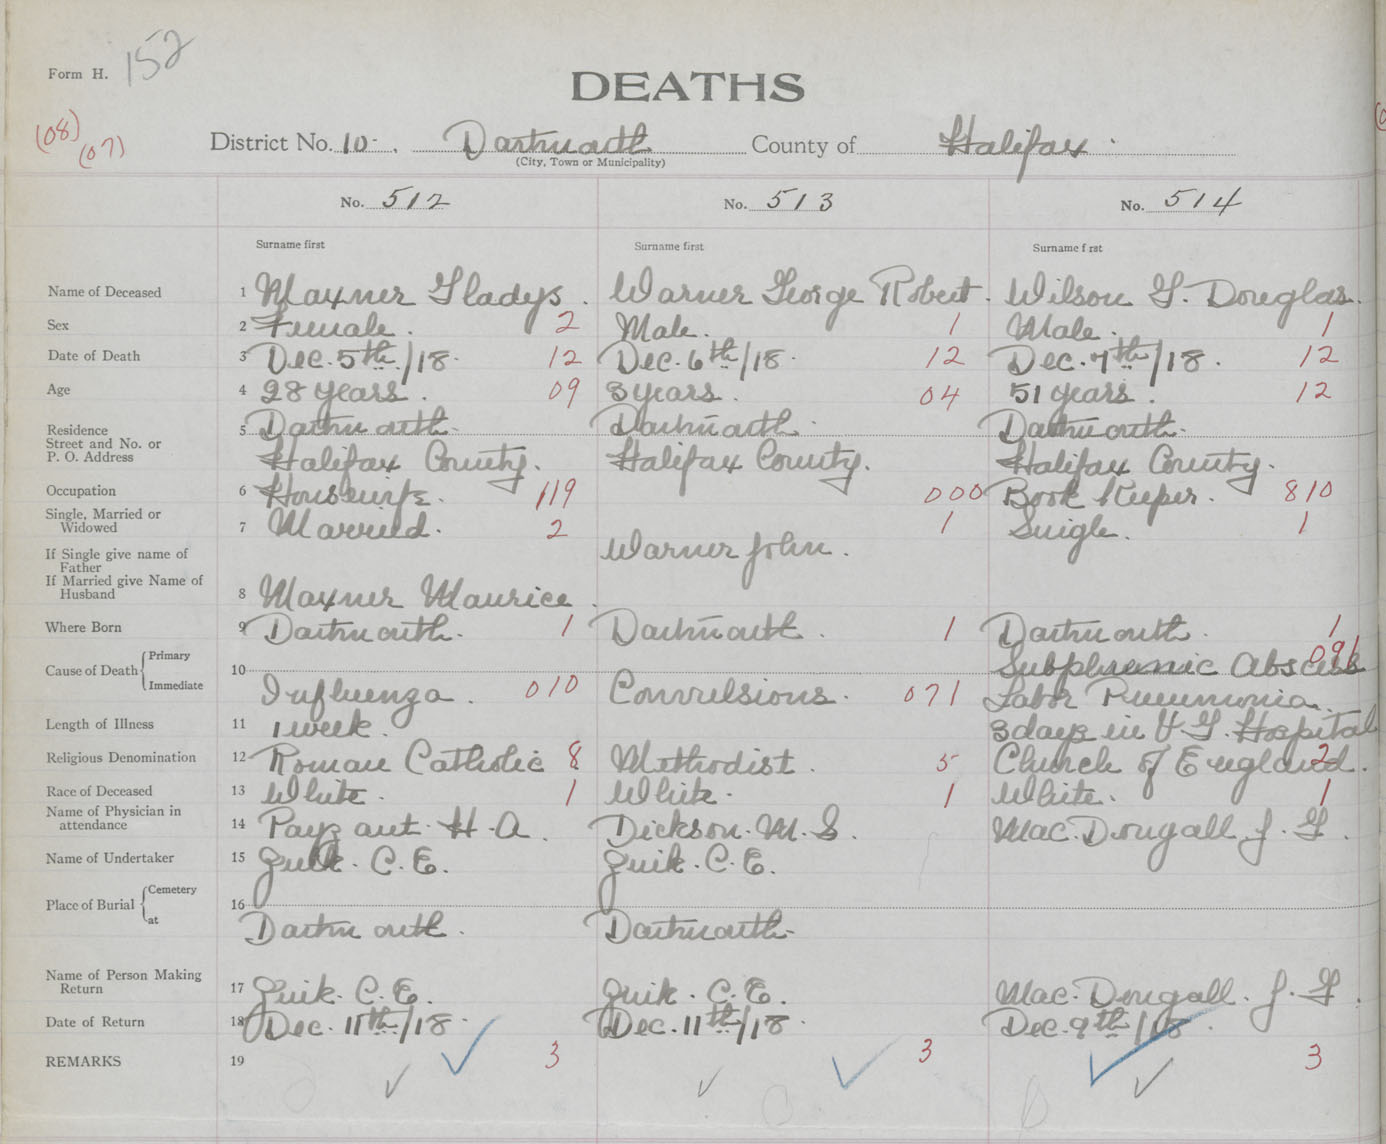 Form H. 152
DEATHS
(08) (07)
District No. 10 . Dartmouth County of Halifax
(City, Town or Municipality)
No. 512 No. 513 No. 514
Surname first Surname first Surname f rst
Name of Deceased 1 Maxner Gladys . Warner George Robert . Wilson G. Douglas .
Sex 2 Female . 2 Male . 1 Male . 1
Date of Death 3 Dec. 5th/18 . 12 Dec. 6th/18 . 12 Dec. 7th/18 . 12
Age 4 28 years . 09 3 years . 04 51 years . 12
Residence
Street and No. or 5 Dartmouth . Dartmouth . Dartmouth .
P. O. Address Halifax County . Halifax County . Halifax County .
Occupation 6 Housewife . 119 000 Book Keeper . 810
Single, Married or
Widowed 7 Married . 2 1 Single . 1
If Single give name of
Father Warner John .
If Married give Name of
Husband 8 Maxner Maurice .
Where Born 9 Dartmouth . 1 Dartmouth . 1 Dartmouth . 1
Cause of Death Primary 10 Subphrenic Abscess 091
Immediate Influenza . 010 Convulsions . 071 Lobor Pneumonia .
Length of Illness 11 1 week . 3 days in V. G. Hospital
Religious Denomination 12 Roman Catholic 8 Methodist . 5 Church of England . 2
Race of Deceased 13 White . 1 White . 1 White . 1
Name of Physician in
attendance 14 Payzant . H . A . Dickson . M . S . Mac . Dougall J . G .
Name of Undertaker 15 Zuik . C . E . Zuik . C . E .
Place of Burial Cemetery 16
at Dartmouth . Dartmouth .
Name of Person Making
Return 17 Zuik . C . E . Zuik . C . E . Mac . Dougall . J . G .
Date of Return 18 Dec. 11th/18 . Dec. 11th/18 . Dec. 9th/18 .
REMARKS 19 3 3 3